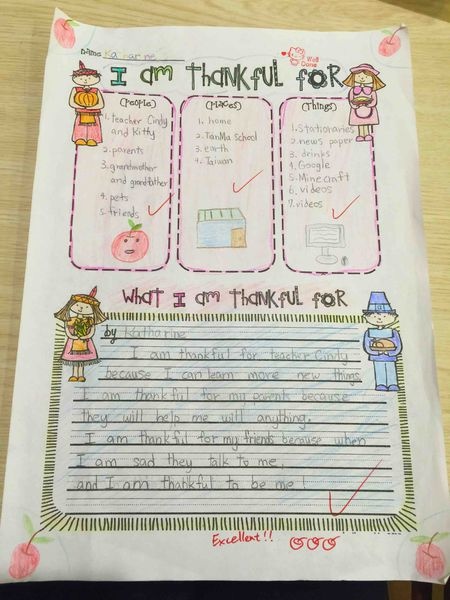 name Katharine
Well Done
I am thankful for
(People)
1. teacher Cindy
and Kitty
2. parents
3. grandmother
and grandfather
4. pets
5. friends
(Places)
1. home
2. TanMa school
3. earth
4. Taiwan
(Things)
1. stationaries
2. news paper
3. drinks
4. Google
5. Minecraft
6. videos
7. videos
What I am thankful for
by Katharine
I am thankful for teacher Cindy
because I can learn more new things.
I am thankful for my parents because
they will help me will anything.
I am thankful for my friends because when
I am sad they talk to me,
and I am thankful to be me!
Excellent!!